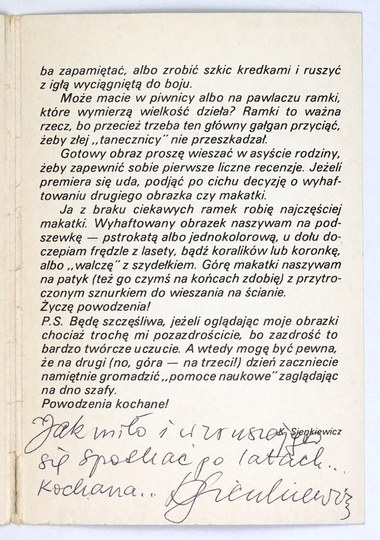 ba zapamiętać, albo zrobić szkic kredkami i ruszyć
z igłą wyciągniętą do boju.
Może macie w piwnicy albo na pawlaczu ramki,
które wymierzą wielkość dzieła? Ramki to ważna
rzecz, bo przecież trzeba ten główny gałgan przyciąć,
żeby złej „tanecznicy” nie przeszkadzał.
Gotowy obraz proszę wieszać w asyście rodziny,
żeby zapewnić sobie pierwsze liczne recenzje. Jeżeli
premiera się uda, podjąć po cichu decyzję o wyhaf-
towaniu drugiego obrazka czy makatki.
Ja z braku ciekawych ramek robię najczęściej
makatki. Wyhaftowany obrazek naszywam na pod-
szewkę — pstrokatą albo jednokolorową, u dołu do-
czepiam frędzle z lasety, bądź koralików lub koronkę,
albo „walczę” z szydełkiem. Górę makatki naszywam
na patyk (też go czymś na końcach zdobię) z przytro-
czonym sznurkiem do wieszania na ścianie.
Życzę powodzenia!
P.S. Będę szczęśliwa, jeżeli oglądając moje obrazki
chociaż trochę mi pozazdrościcie, bo zazdrość to
bardzo twórcze uczucie. A wtedy mogę być pewna,
że na drugi (no, góra — na trzeci!) dzień zaczniecie
namiętnie gromadzić „pomoce naukowe” zaglądając
na dno szafy.
Powodzenia kochane!
Sienkiewicz
Jak miło i wzruszająco
się spotkać po latach...
kochana.. Sienkiewicz